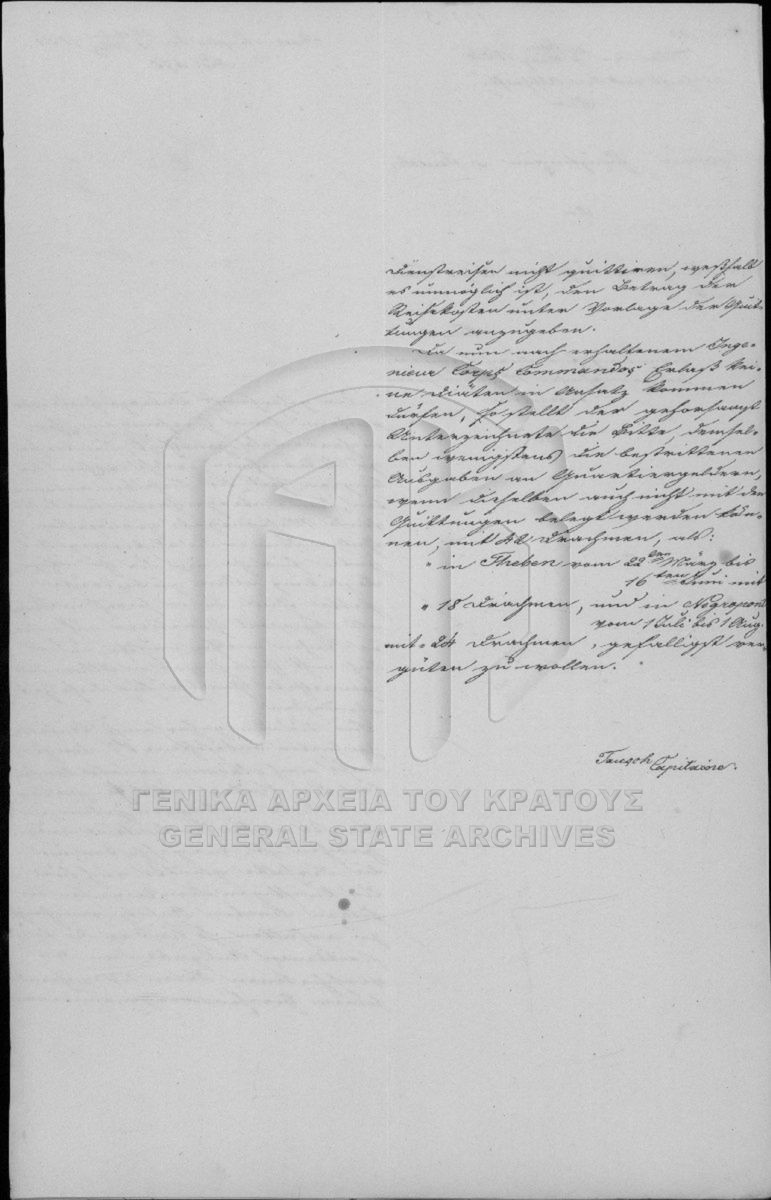 Dienstreisen nicht quittiren, weßhalb
es unmöglich ist, den Betrag der
Reisekosten unter Vorlage der Quit-
tungen anzugeben.
Da nun nach erhaltenem Inge-
nieur Corps Commandos Erlaß kei-
ne Diäten in Ansatz kommen
dürfen, so stellt der gehorsamst
Unterzeichnete die Bitte, demsel-
ben wenigstens die bestrittenen
Ausgaben an Quartiergeldern,
wenn dieselben auch nicht mit den
Quittungen belegt werden kön-
nen, mit 42 Drachmen, als:
" in Theben vom 22ten März bis
16ten Juni mit
" 18 Drachmen, und in Negropont
vom 1 Juli bis 1 Aug.
mit 24 Drachmen, gefälligst ver-
güten zu wollen.
Capitaine.
ΓΕΝΙΚΑ ΑΡΧΕΙΑ ΤΟΥ ΚΡΑΤΟΥΣ
GENERAL STATE ARCHIVES